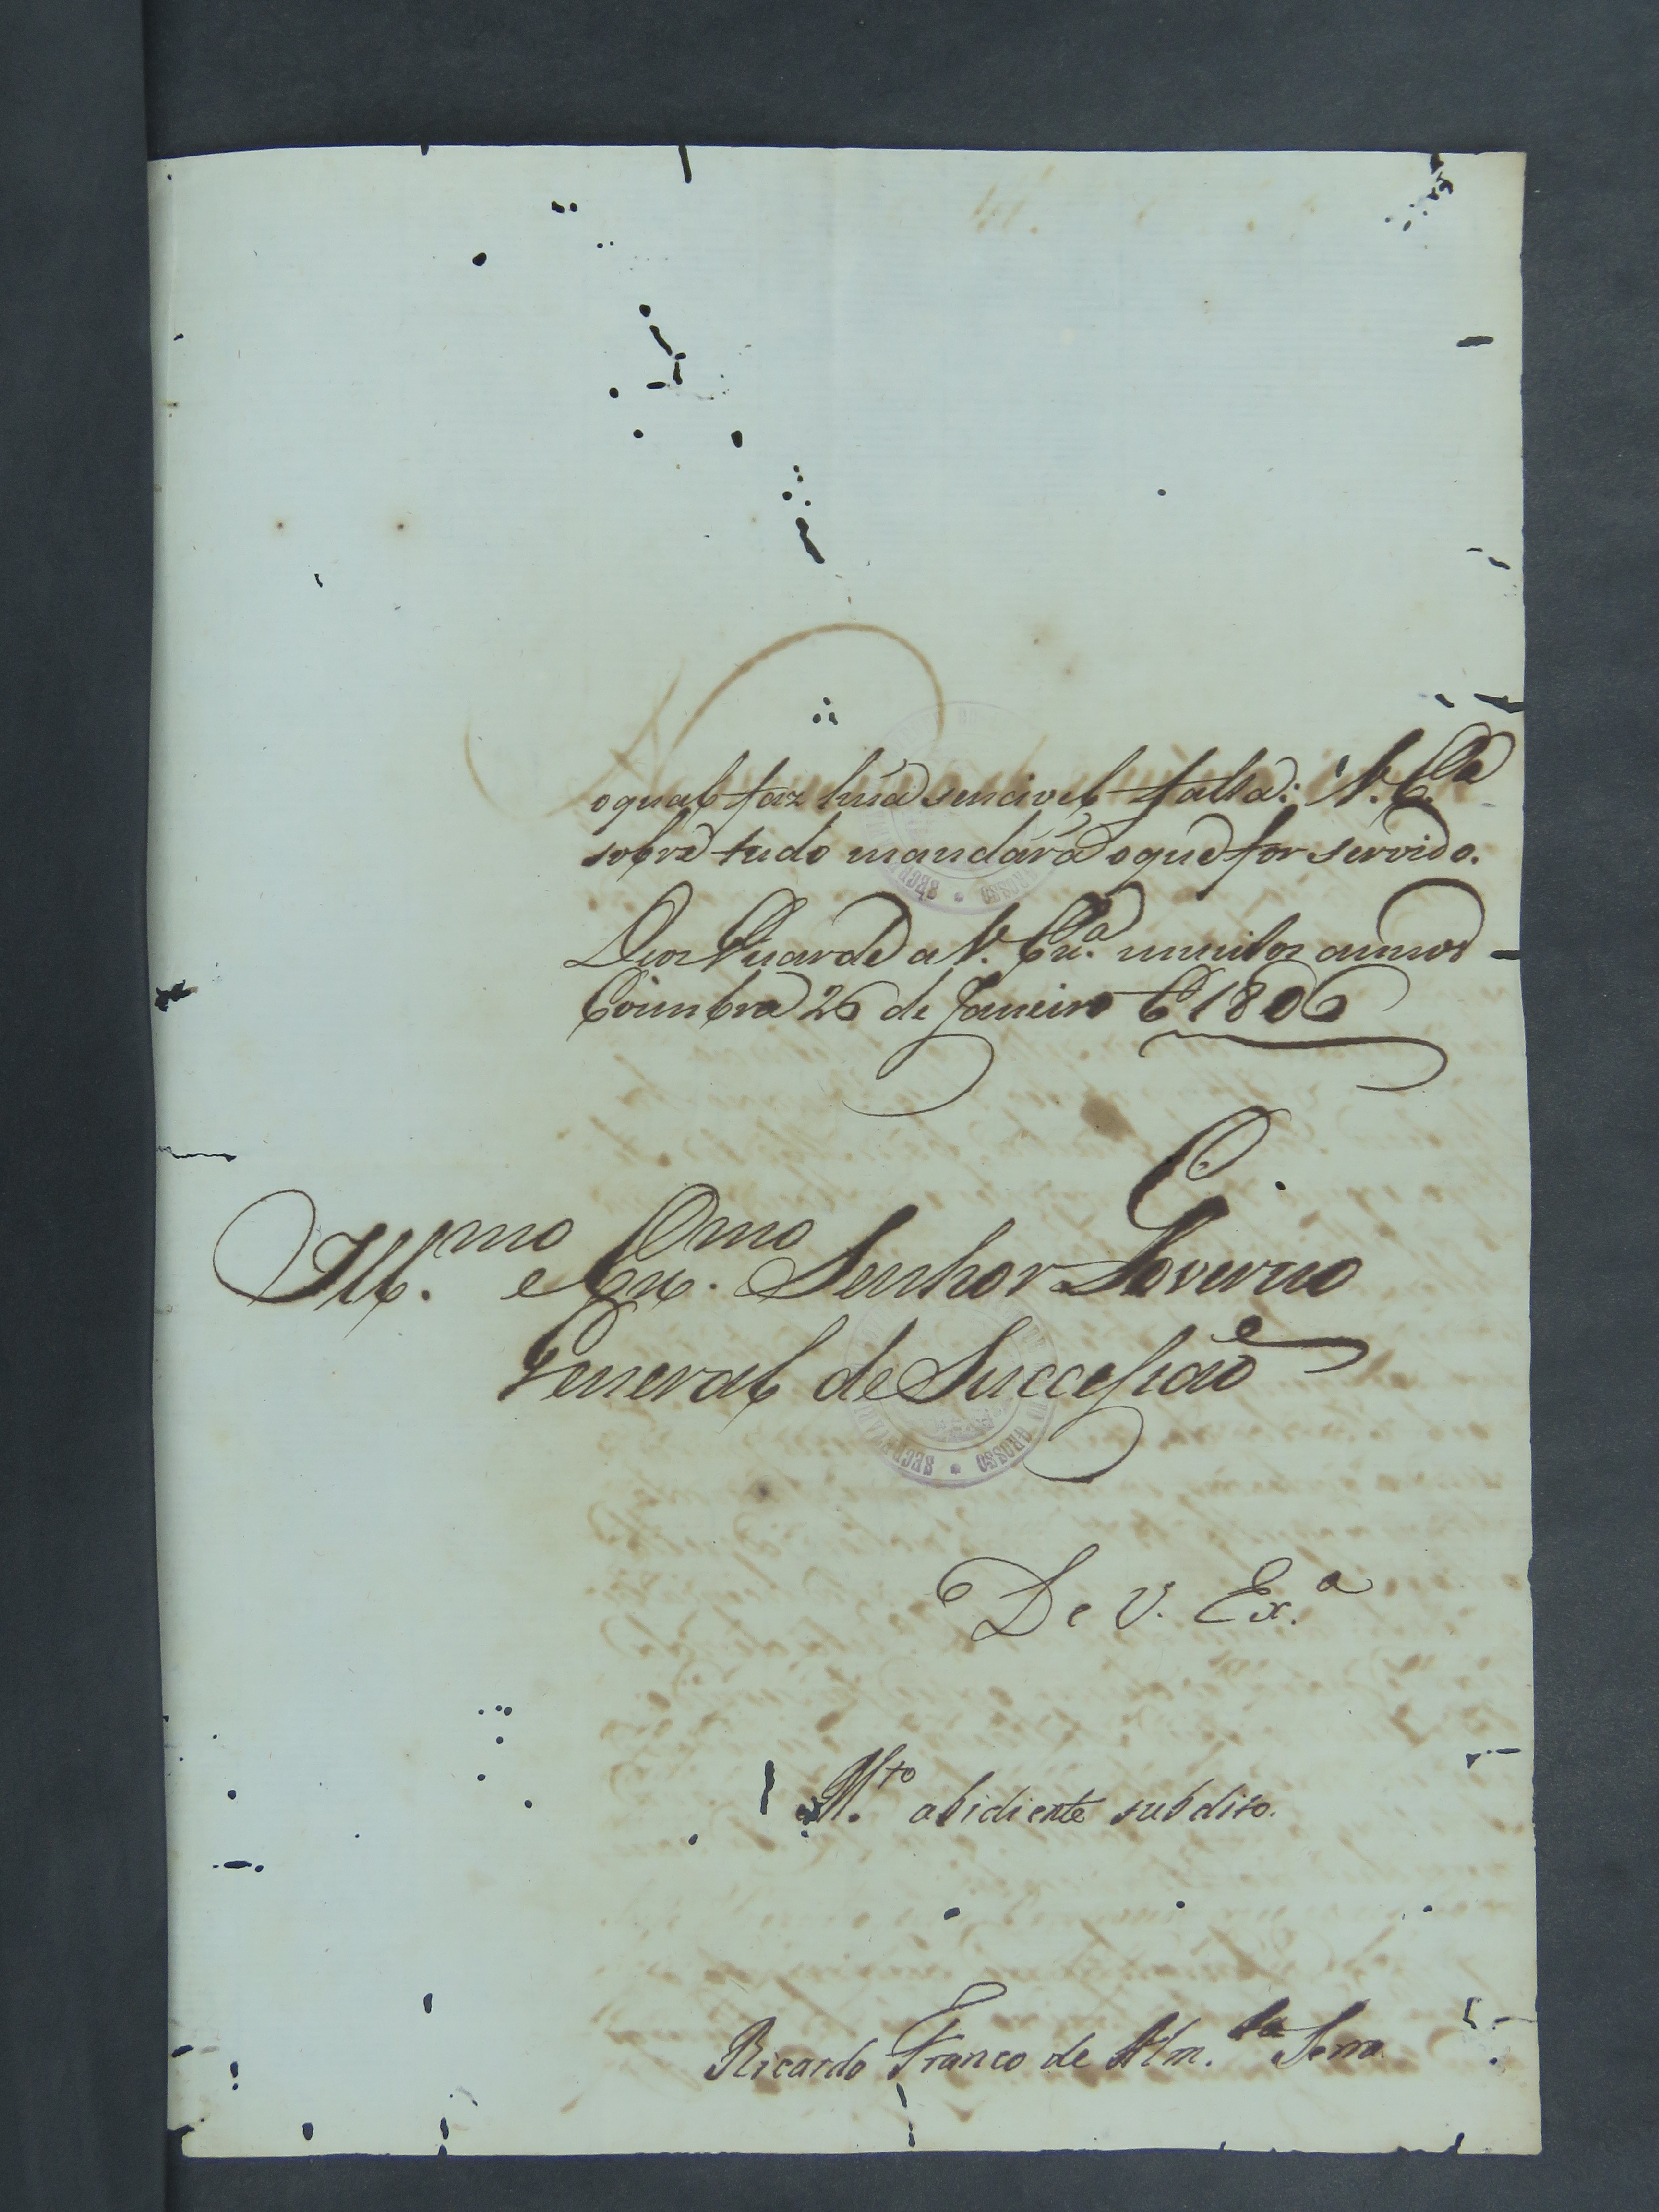 o qual faz húa sencivel falta: V. Ex.ª
sobre tudo mandará o que for servido.
Deos Guarde a V. Ex.ª muitos annos
Coimbra 26 de Janeiro de 1806
Ill.mo e Ex.mo Senhor Governo
General de Successaõ
De V. Ex.ª
M.to obidiente subdito.
Ricardo Franco de Alm.da Serra